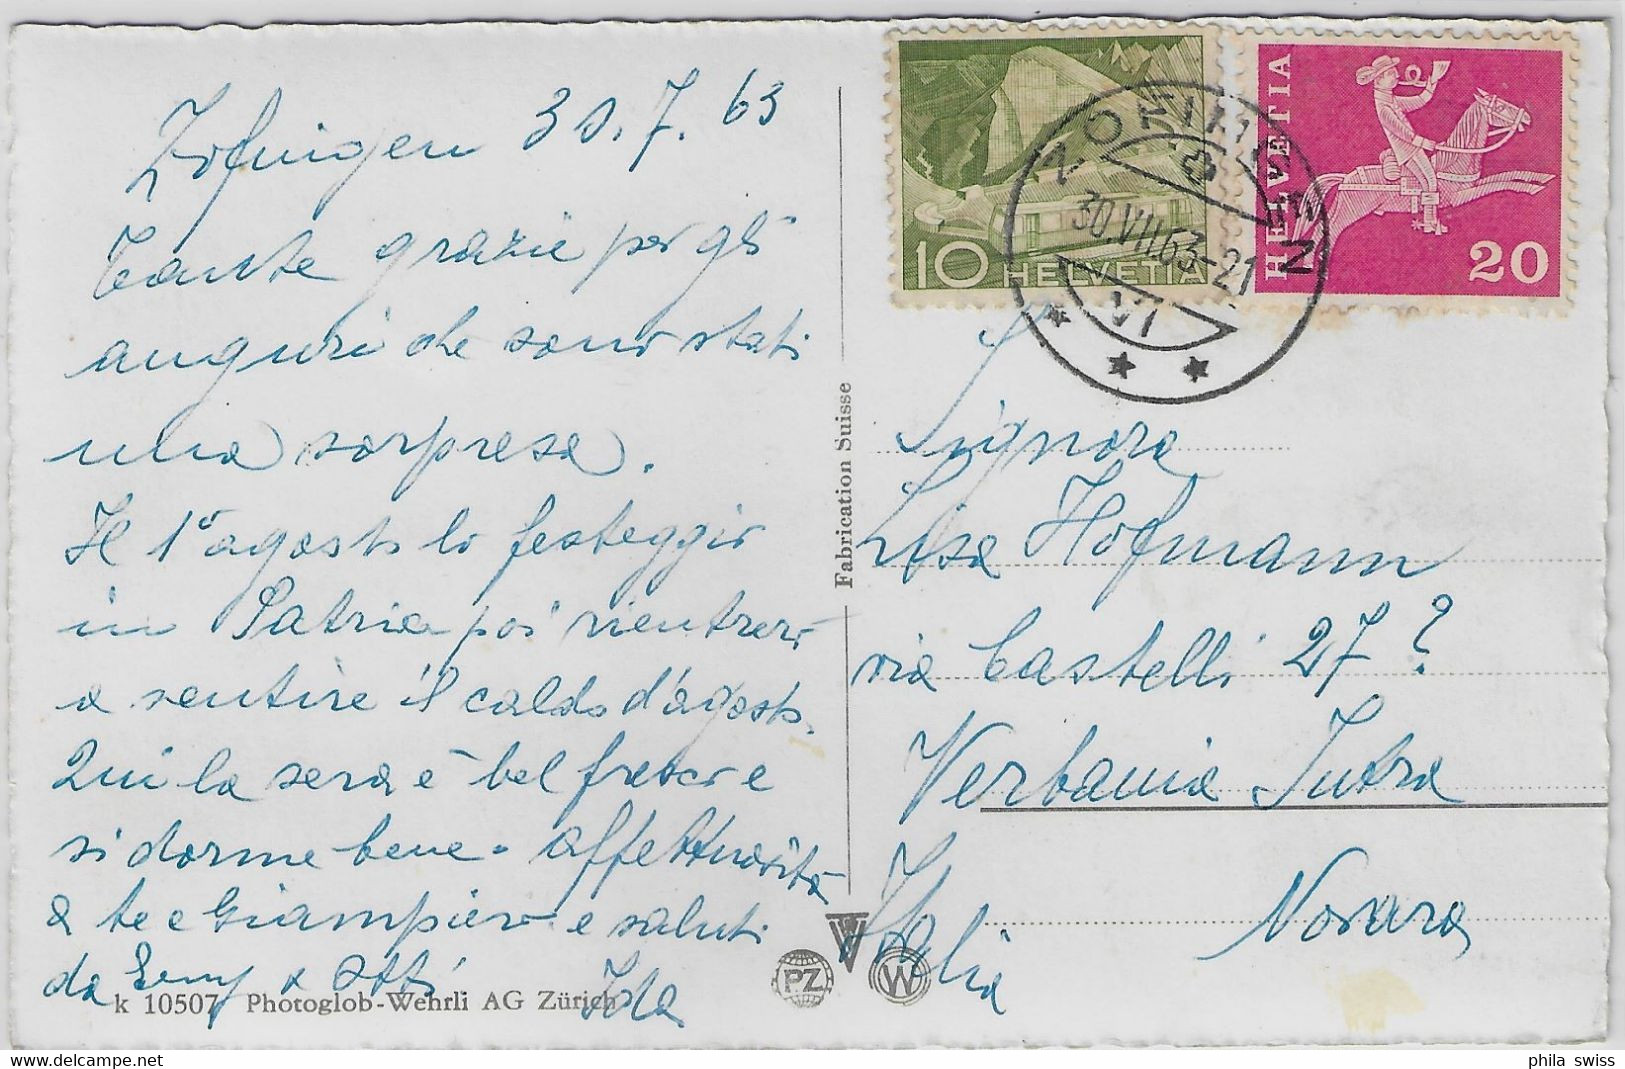 Zofingen 30.7.63
Tante grazie per gli
auguri che sono stati
una sorpresa.
Il 1° agosto lo festeggio
in Patria poi rientrerò
a sentire il caldo d'agosto.
Qui la sera è bel fresco e
si dorme bene. affettuosità
a te e Giampiero e saluti
da Emy e Otti. Ida
k 10507 Photoglob-Wehrli AG Zürich
Fabrication Suisse
10 HELVETIA
HELVETIA
20
ZOFINGEN
30.VII.63-21
VI
Signora
Lisa Hofmann
via Castelli 27?
Verbania Intra
Italia Novara
PZ
W
delcampe.net
phila_swiss